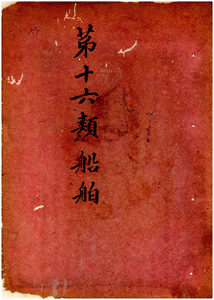 第十六類 船舶